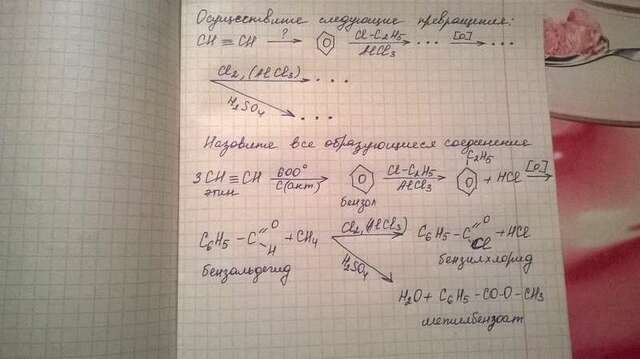 Осуществите следующие превращения:
CH ≡ CH —?→ ⌬ —Cl-C₂H₅/AlCl₃→ ... —[O]→ ...
Cl₂, (AlCl₃) → ...
H₂SO₄ → ...
Назовите все образующиеся соединение
3CH ≡ CH —600°/C(акт)→ ⌬ —Cl-C₂H₅/AlCl₃→ ⌬ C₂H₅ + HCl —[O]→
этин
бензол
C₆H₅ - C =O -H + CH₄ —Cl₂, (AlCl₃)→ C₆H₅ - C =O -Cl + HCl
бензальдегид
бензилхлорид
H₂SO₄ → H₂O + C₆H₅ - CO - O - CH₃
метилбензоат